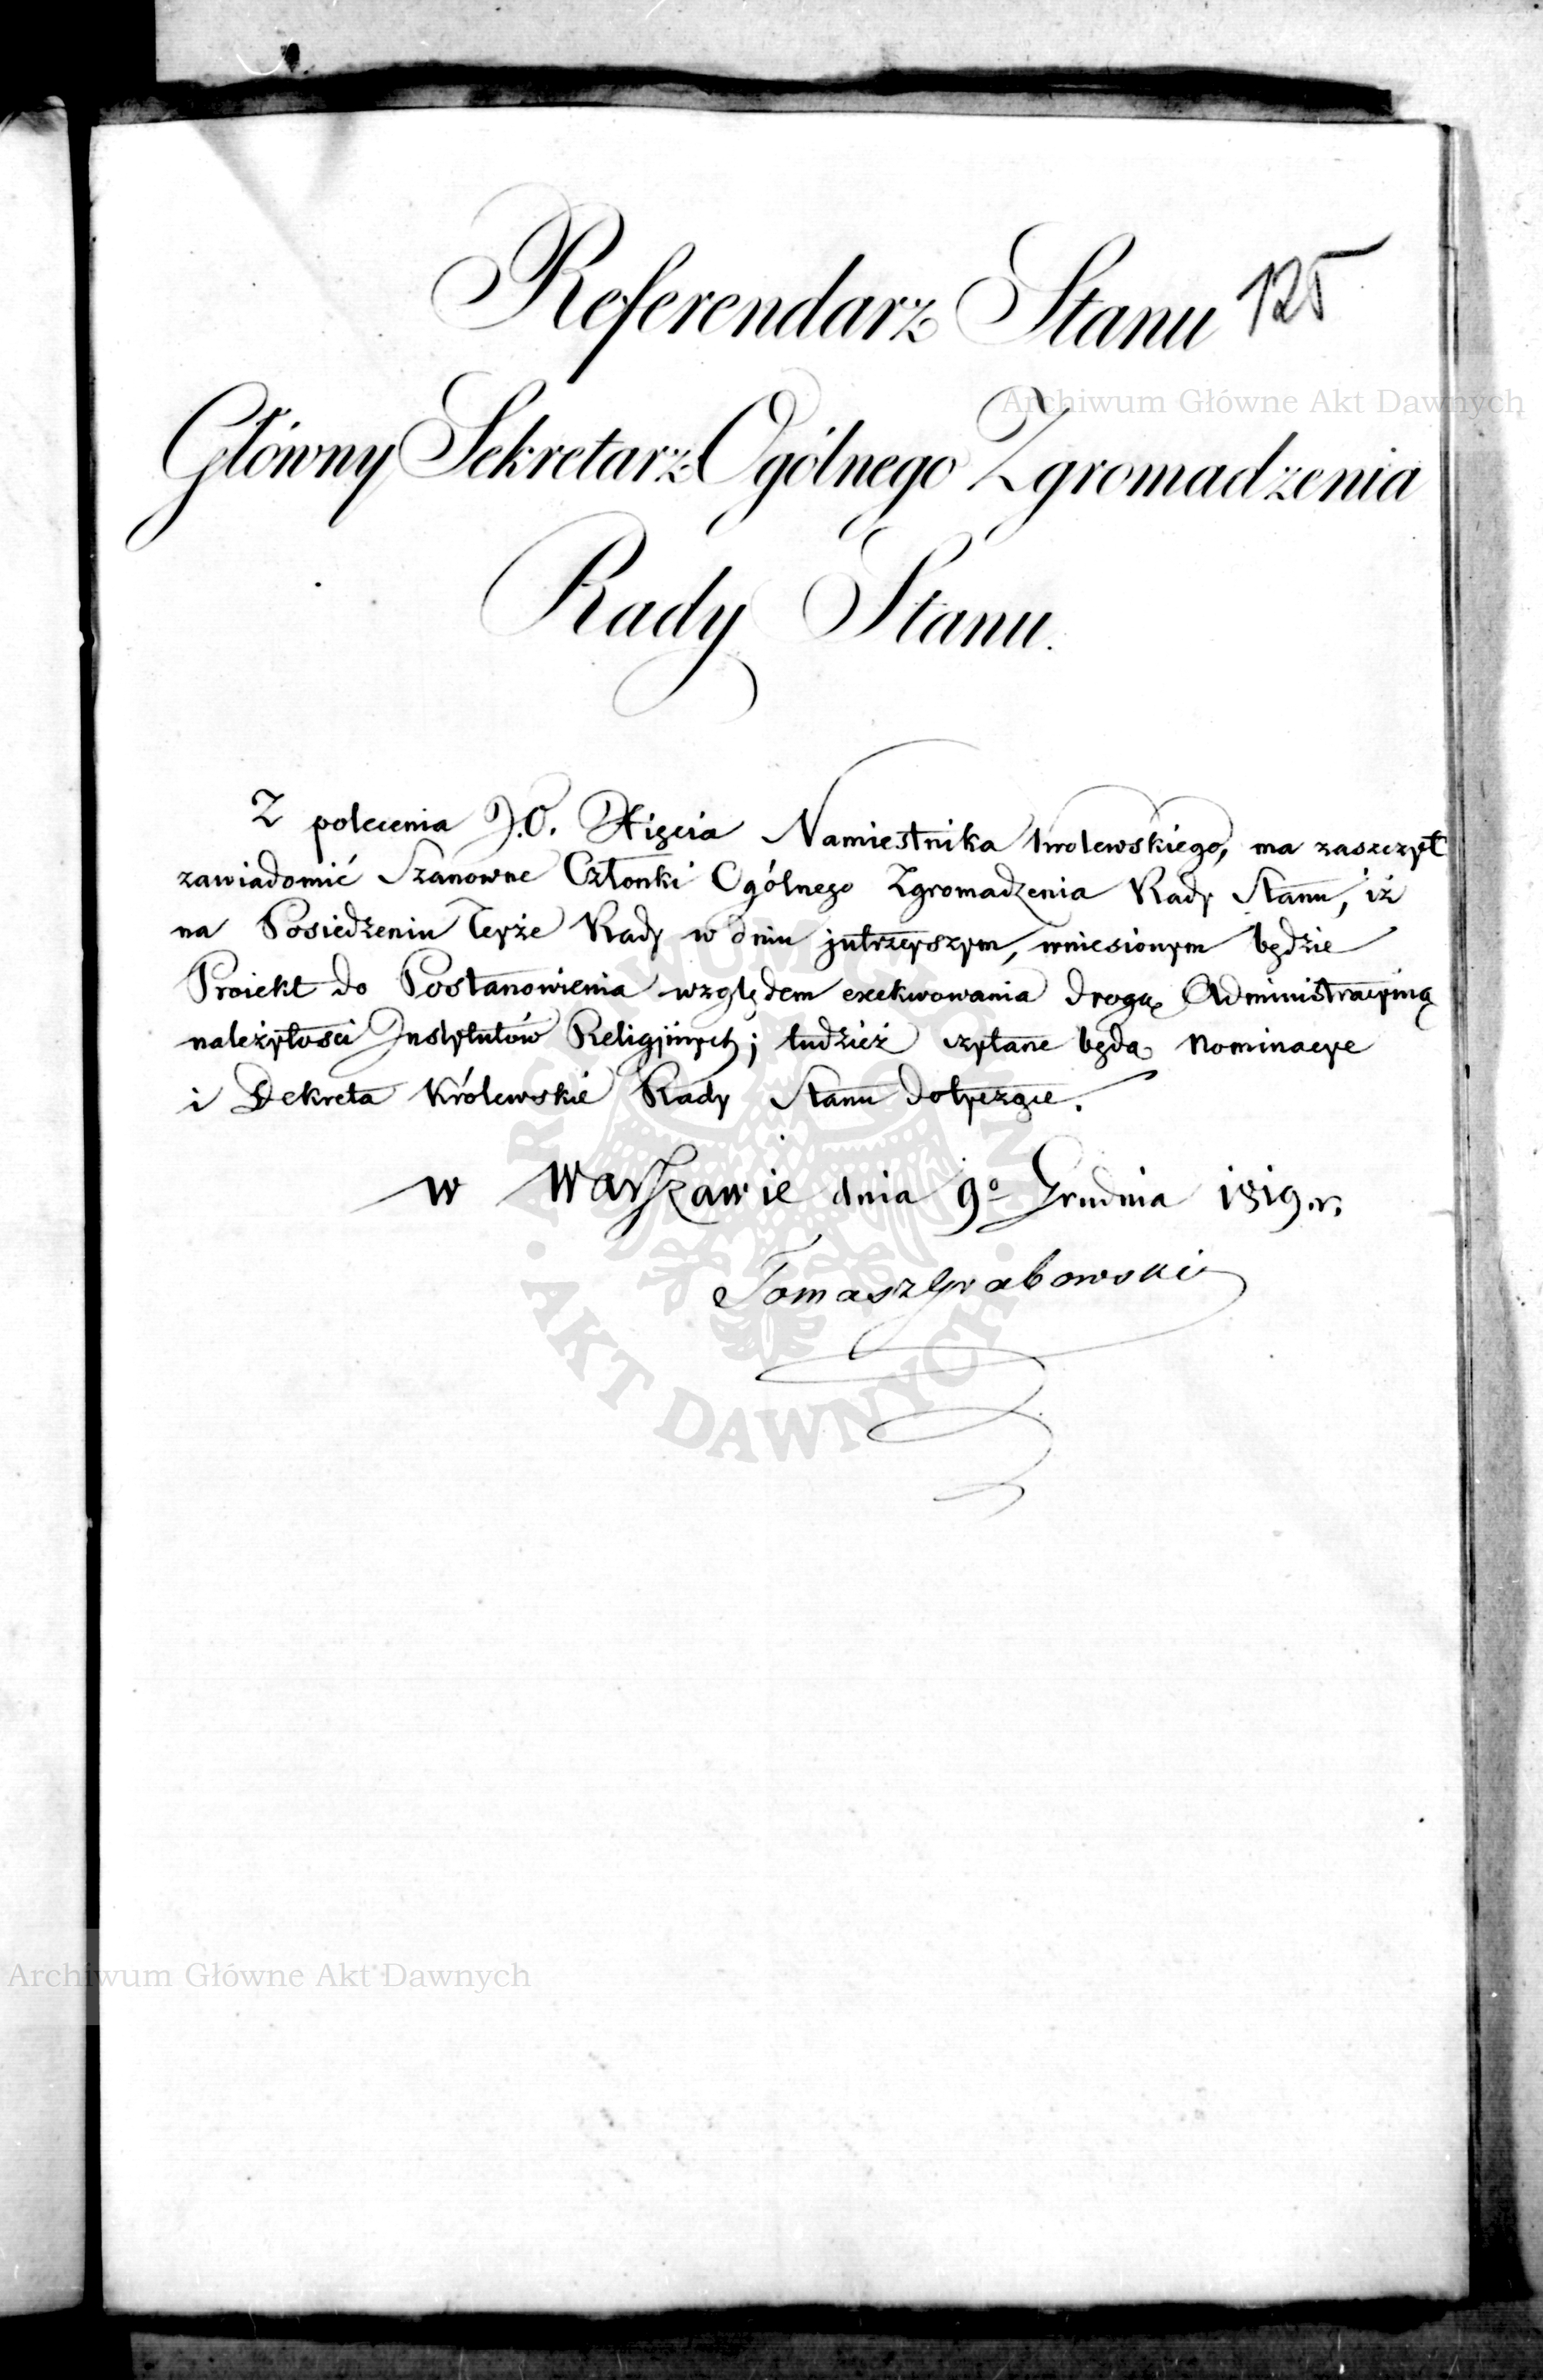 Referendarz Stanu 125
Archiwum Główne Akt Dawnych
Główny Sekretarz Ogólnego Zgromadzenia
Rady Stanu.
Z polecenia J.O. Xięcia Namiestnika Krolewskiego, ma zaszczyt
zawiadomić Szanowne Członki Ogólnego Zgromadzenia Rady Stanu, iż
na Posiedzeniu Teyże Rady w dniu jutrzeyszym, wniesionym będzie
Proiekt do Postanowienia względem exekwowania drogą Administracyiną
należytości Instytutów Religijnych; tudzież czytane będą Nominacye
i Dekreta Królewskie Rady Stanu dotyczące.
w Warszawie dnia 9o Grudnia 1819.r.
Tomasz Grabowski
ARCHIWUM GŁÓWNE
AKT DAWNYCH
Archiwum Główne Akt Dawnych